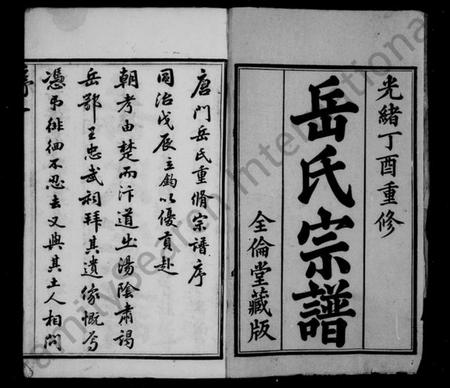 光緒丁酉重修
岳氏宗譜
全倫堂藏版
唐門岳氏重脩宗譜序
同治戊辰立鈞以優貢赴
朝考由楚而汴道出湯陰肅謁
岳鄂王忠武祠拜其遺像慨焉
憑弔徘徊不忍去又與其土人相問